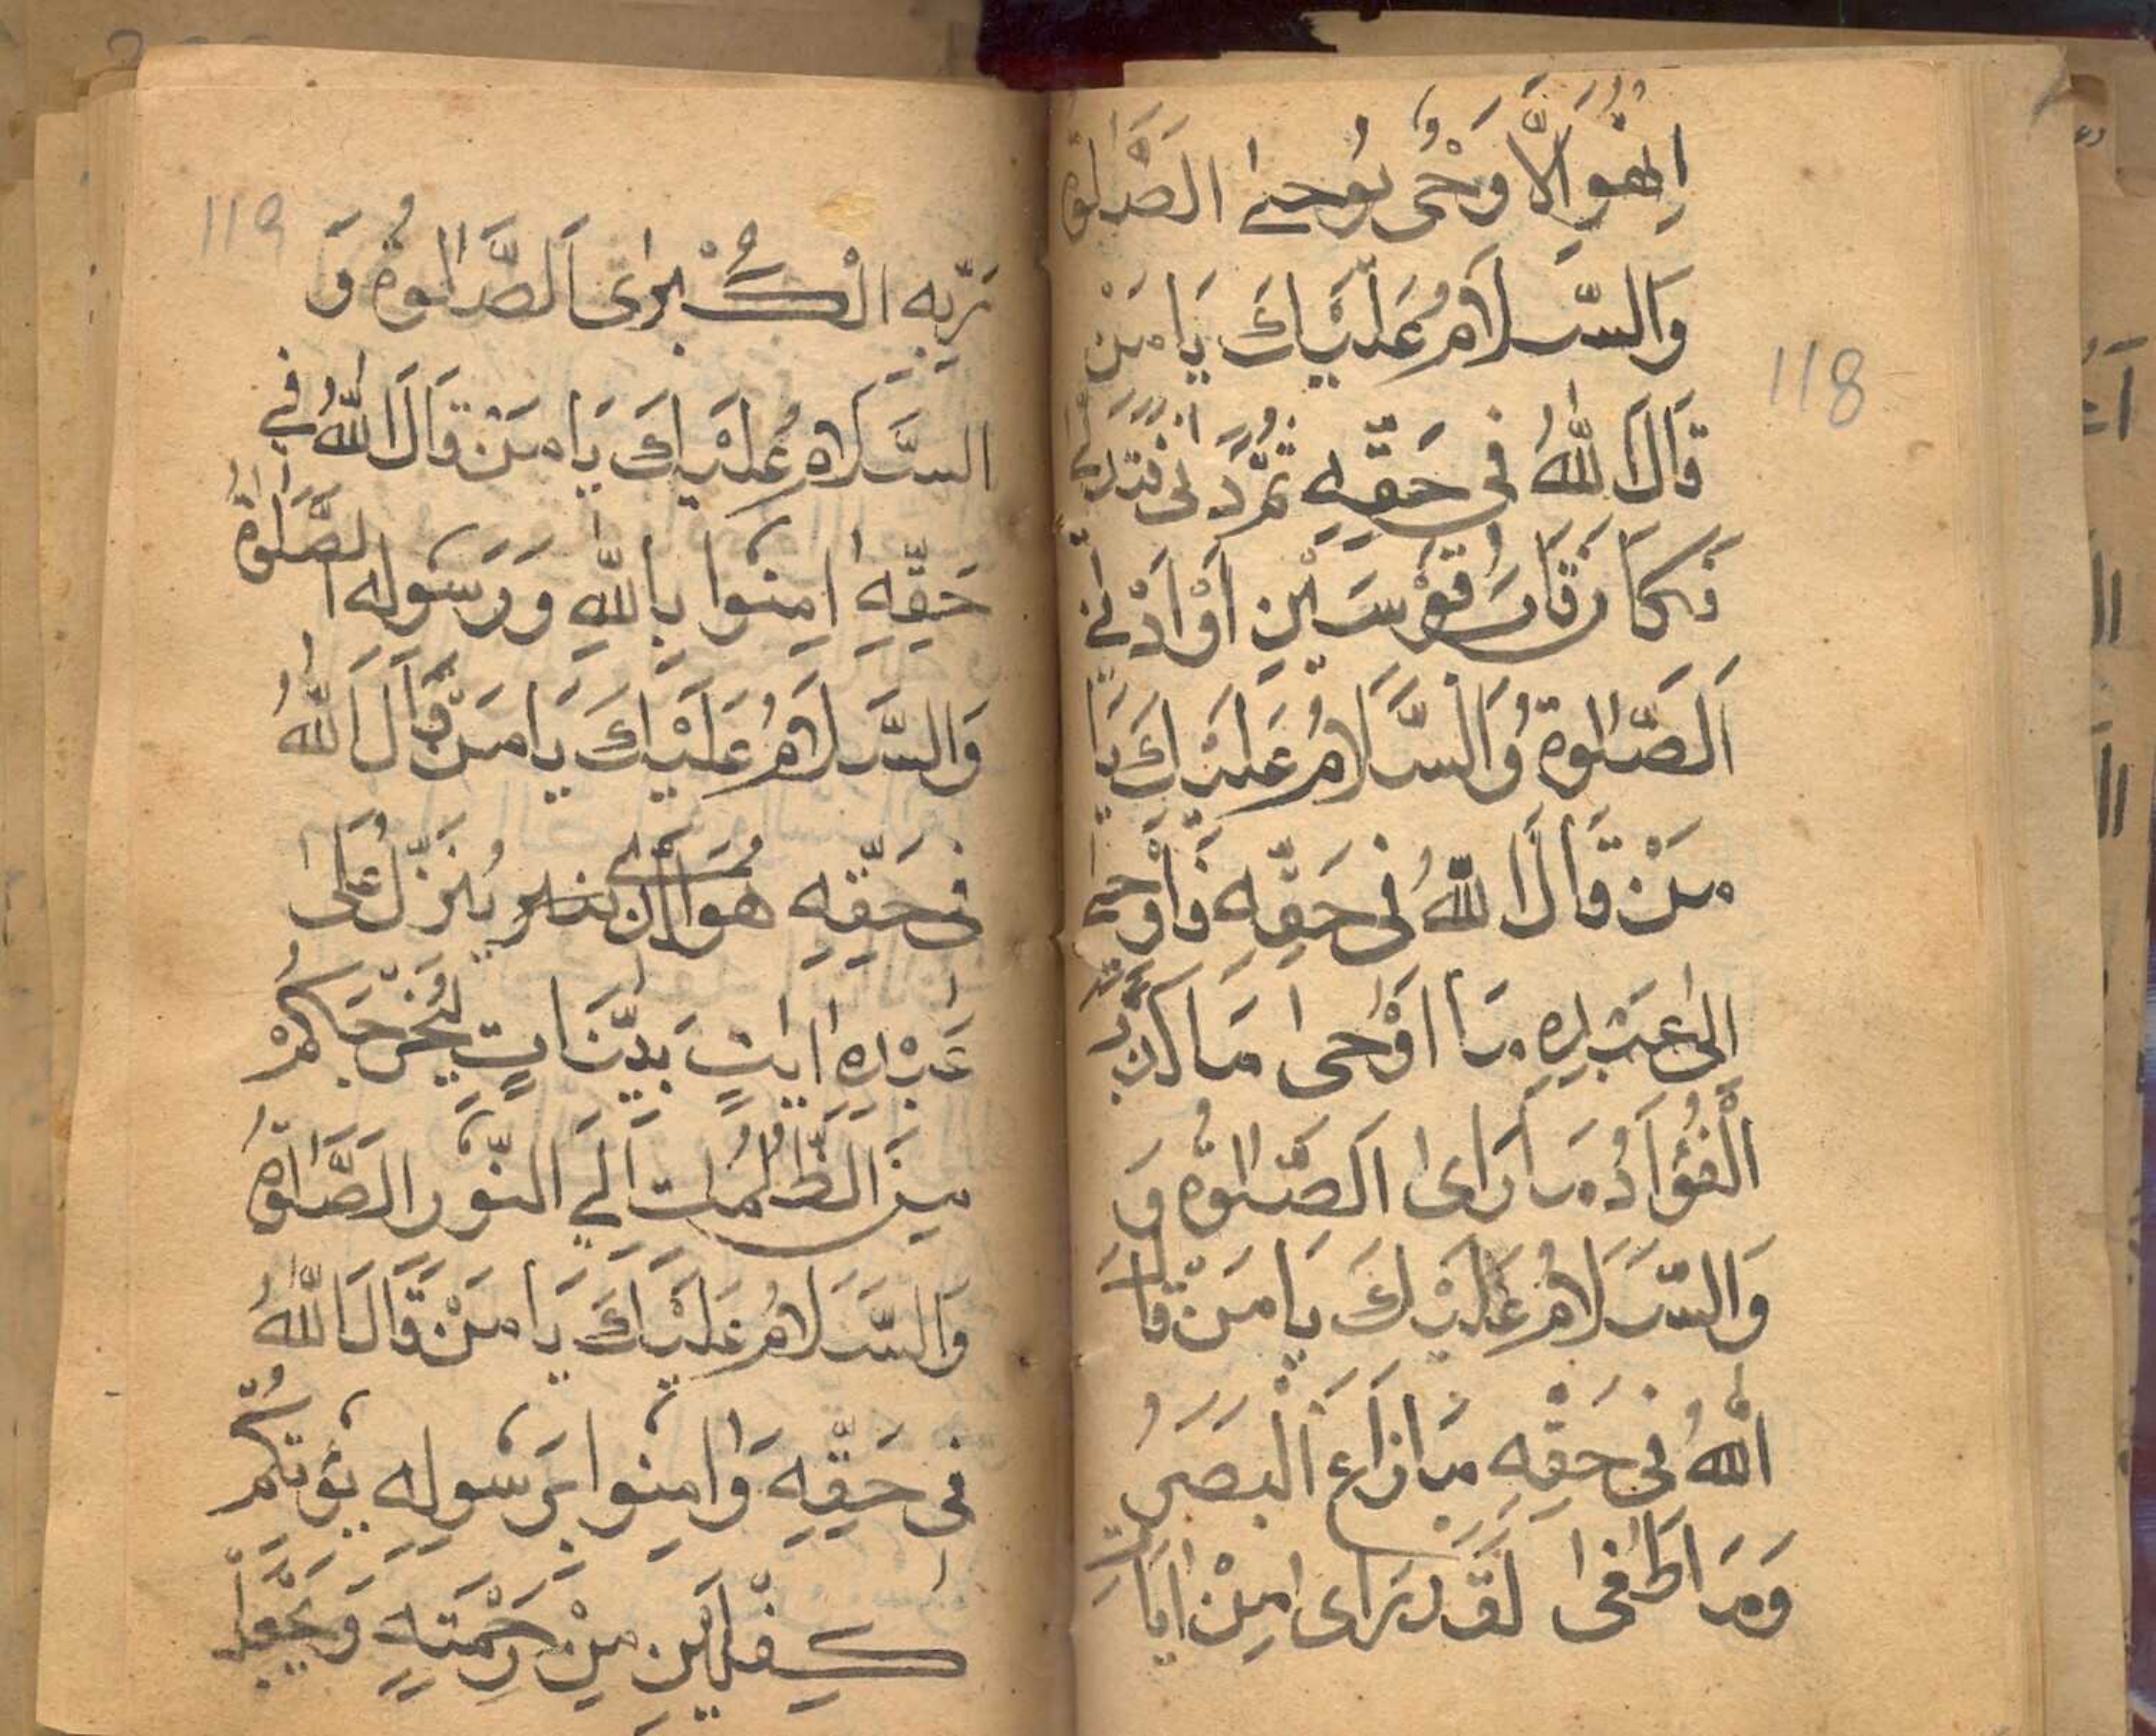 اِنْ هُوَ اِلَّا وَحْىٌ يُوحىٰ الصَّلٰوةُ
وَالسَّلَامُ عَلَيْكَ يَا مَنْ
118
قَالَ اللّٰهُ فِى حَقِّهِ ثُمَّ دَنٰى فَتَدَلّٰى
فَكَانَ قَابَ قَوْسَيْنِ اَوْ اَدْنٰى
اَلصَّلٰوةُ وَالسَّلَامُ عَلَيْكَ يَا
مَنْ قَالَ اللّٰهُ فِى حَقِّهِ فَاَوْحٰى
اِلٰى عَبْدِهِ مَا اَوْحٰى مَا كَذَبَ
الْفُؤَادُ مَا رَاٰى اَلصَّلٰوةُ وَ
وَالسَّلَامُ عَلَيْكَ يَا مَنْ قَالَ
اللّٰهُ فِى حَقِّهِ مَا زَاغَ الْبَصَرُ
وَمَا طَغٰى لَقَدْ رَاٰى مِنْ اٰيَاتِ
119
رَبِّهِ الْكُبْرٰى اَلصَّلٰوةُ وَ
السَّلَامُ عَلَيْكَ يَا مَنْ قَالَ اللّٰهُ فِى
حَقِّهِ اٰمِنُوا بِاللّٰهِ وَرَسُولِهِ الصَّلٰوةُ
وَالسَّلَامُ عَلَيْكَ يَا مَنْ قَالَ اللّٰهُ
فِى حَقِّهِ هُوَ الَّذِى يُنَزِّلُ عَلٰى
عَبْدِهِ اٰيٰتٍ بَيِّنَاتٍ لِيُخْرِجَكُمْ
مِنَ الظُّلُمٰتِ اِلَى النُّورِ الصَّلٰوةُ
وَالسَّلَامُ عَلَيْكَ يَا مَنْ قَالَ اللّٰهُ
فِى حَقِّهِ وَاٰمِنُوا بِرَسُولِهِ يُؤْتِكُمْ
كِفْلَيْنِ مِنْ رَحْمَتِهِ وَيَجْعَلْ